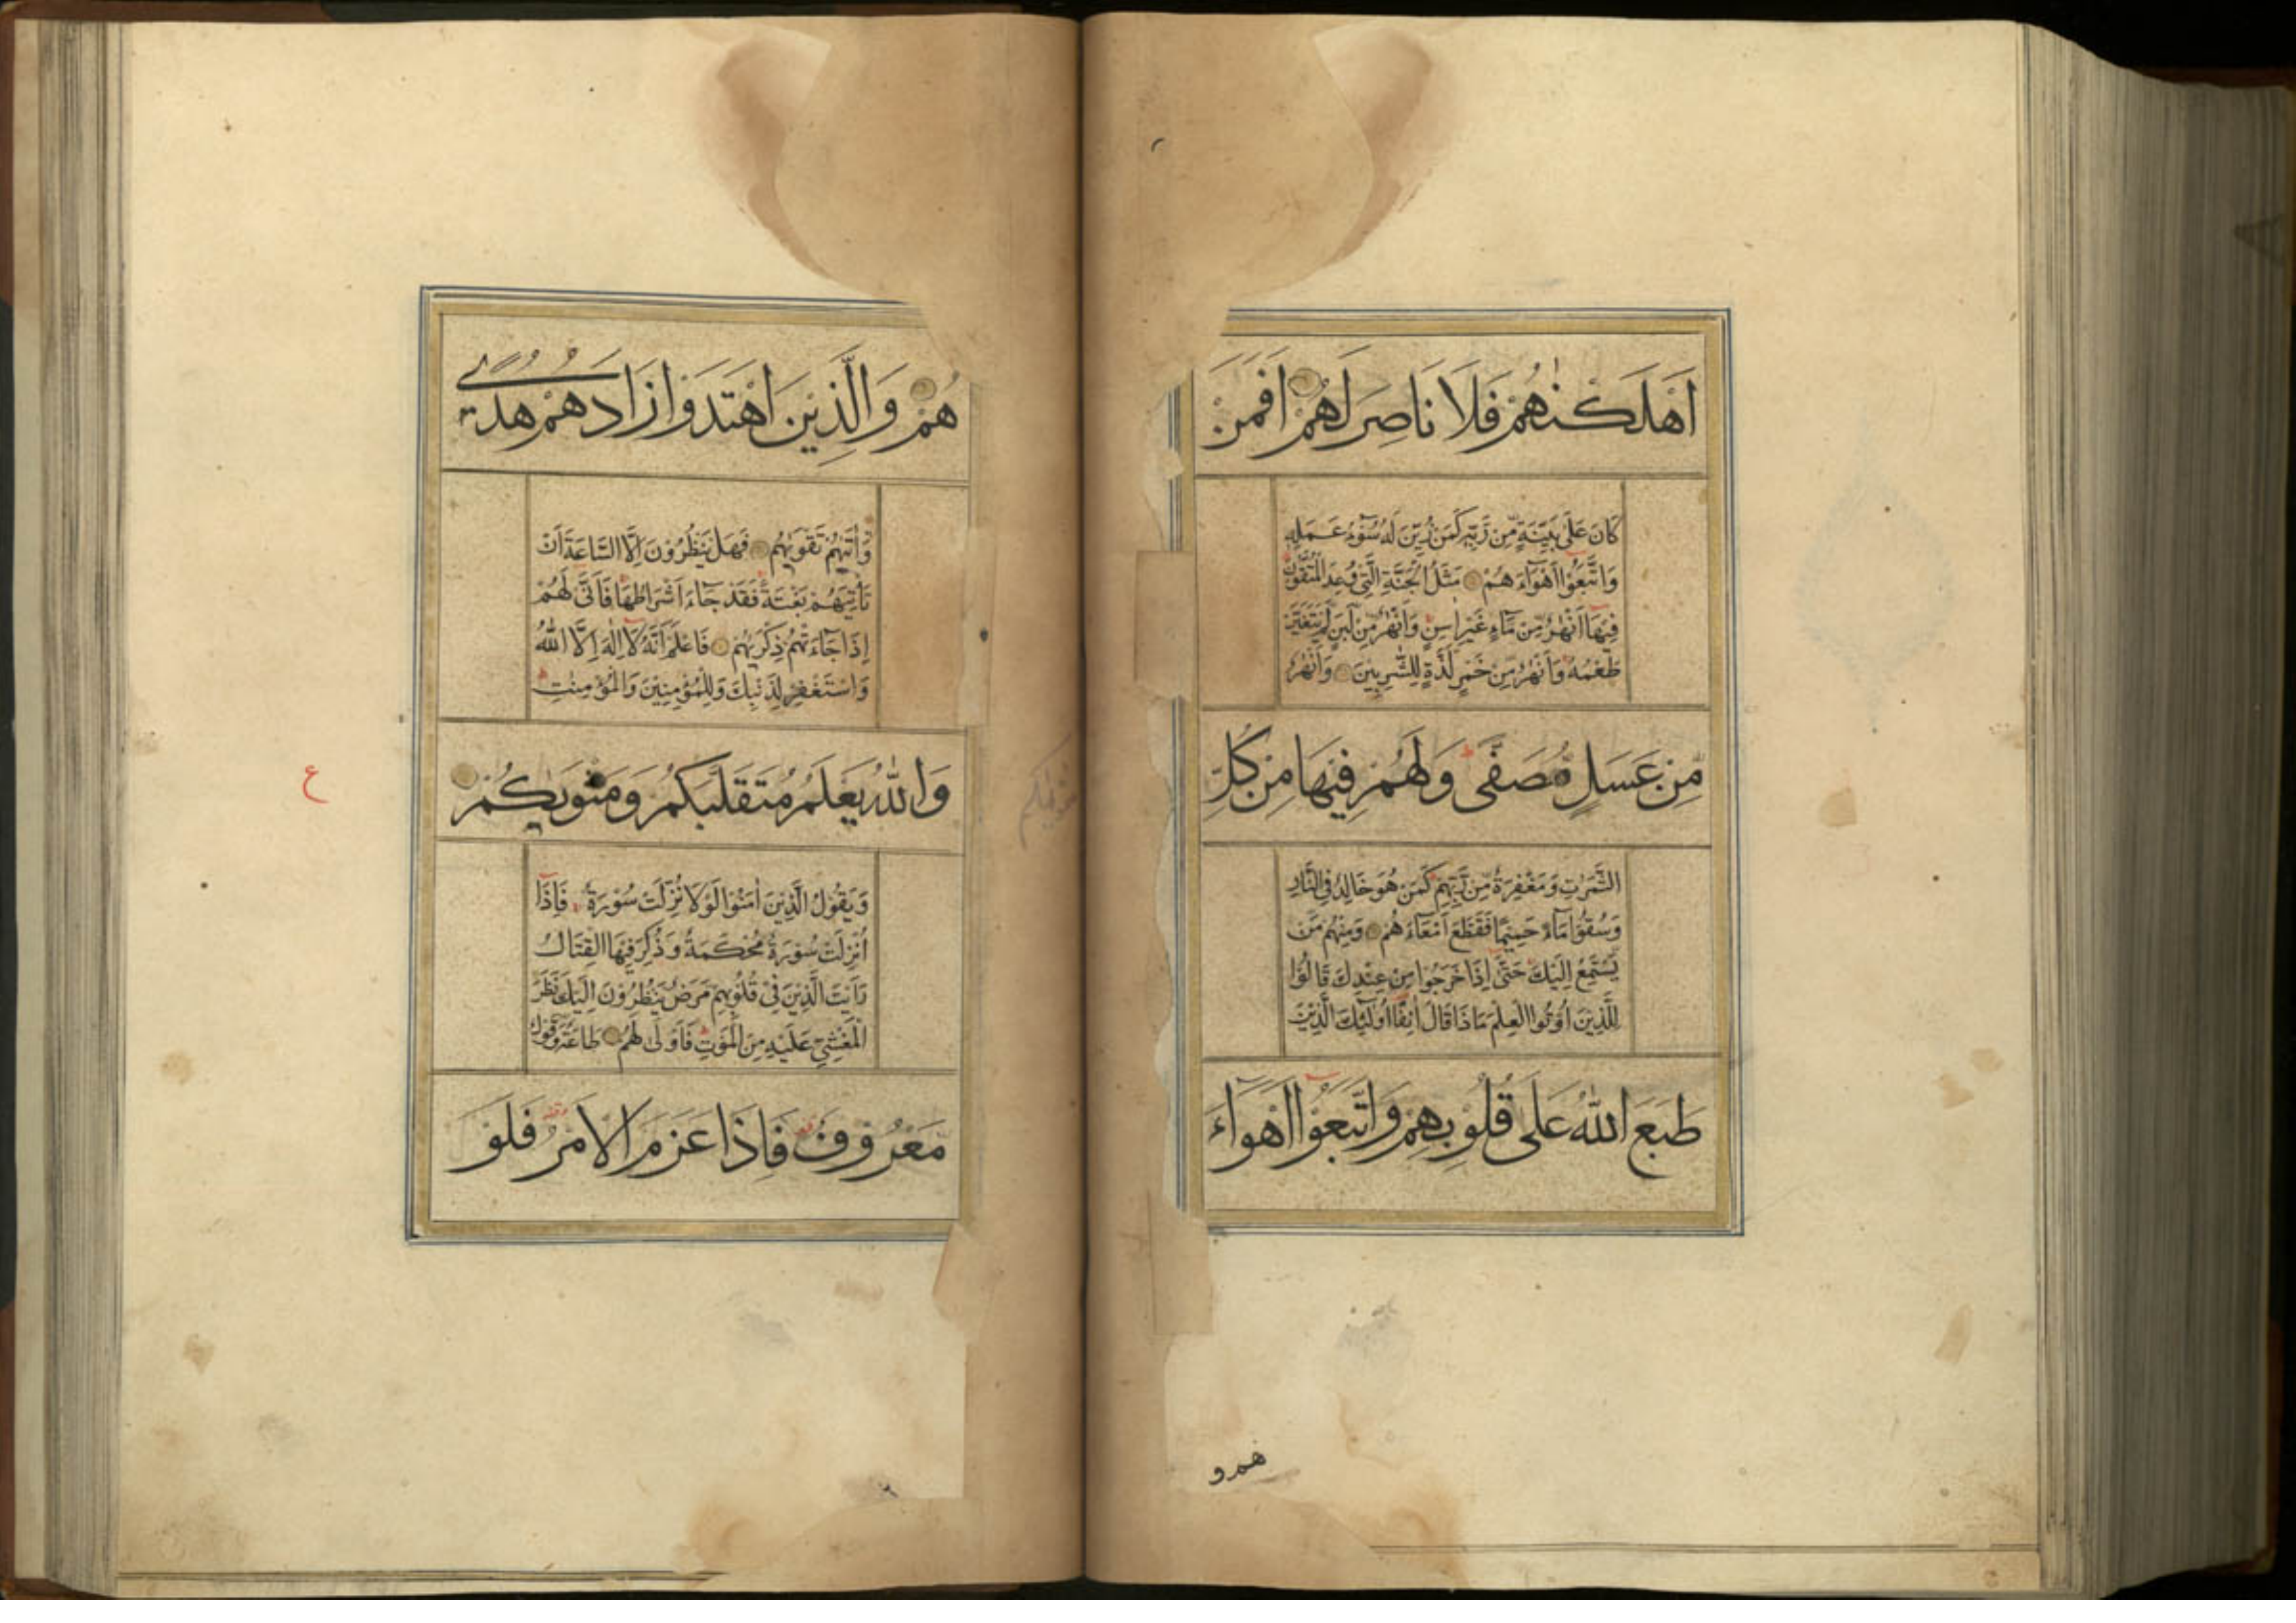 اَهْلَكْنٰهُمْ فَلَا نَاصِرَ لَهُمْ اَفَمَنْ
كَانَ عَلٰى بَيِّنَةٍ مِّنْ رَّبِّهٖ كَمَنْ زُيِّنَ لَهٗ سُوْٓءُ عَمَلِهٖ
وَاتَّبَعُوْٓا اَهْوَآءَهُمْ مَثَلُ الْجَنَّةِ الَّتِيْ وُعِدَ الْمُتَّقُوْنَ
فِيْهَآ اَنْهٰرٌ مِّنْ مَّآءٍ غَيْرِ اٰسِنٍ وَاَنْهٰرٌ مِّنْ لَّبَنٍ لَّمْ يَتَغَيَّرْ
طَعْمُهٗ وَاَنْهٰرٌ مِّنْ خَمْرٍ لَّذَّةٍ لِّلشّٰرِبِيْنَ وَاَنْهٰرٌ
مِّنْ عَسَلٍ مُّصَفًّى وَلَهُمْ فِيْهَا مِنْ كُلِّ
الثَّمَرٰتِ وَمَغْفِرَةٌ مِّنْ رَّبِّهِمْ كَمَنْ هُوَ خَالِدٌ فِي النَّارِ
وَسُقُوْا مَآءً حَمِيْمًا فَقَطَّعَ اَمْعَآءَهُمْ وَمِنْهُمْ مَّنْ
يَّسْتَمِعُ اِلَيْكَ حَتّٰىٓ اِذَا خَرَجُوْا مِنْ عِنْدِكَ قَالُوْا
لِلَّذِيْنَ اُوْتُوا الْعِلْمَ مَاذَا قَالَ اٰنِفًا اُولٰٓئِكَ الَّذِيْنَ
طَبَعَ اللّٰهُ عَلٰى قُلُوْبِهِمْ وَاتَّبَعُوْٓا اَهْوَآءَ
هم و
هُمْ وَالَّذِيْنَ اهْتَدَوْا زَادَهُمْ هُدًى
وَّاٰتٰىهُمْ تَقْوٰىهُمْ فَهَلْ يَنْظُرُوْنَ اِلَّا السَّاعَةَ اَنْ
تَأْتِيَهُمْ بَغْتَةً فَقَدْ جَآءَ اَشْرَاطُهَا فَاَنّٰى لَهُمْ
اِذَا جَآءَتْهُمْ ذِكْرٰىهُمْ فَاعْلَمْ اَنَّهٗ لَآ اِلٰهَ اِلَّا اللّٰهُ
وَاسْتَغْفِرْ لِذَنْبِكَ وَلِلْمُؤْمِنِيْنَ وَالْمُؤْمِنٰتِ
وَاللّٰهُ يَعْلَمُ مُتَقَلَّبَكُمْ وَمَثْوٰىكُمْ
ع
وَيَقُوْلُ الَّذِيْنَ اٰمَنُوْا لَوْلَا نُزِّلَتْ سُوْرَةٌ فَاِذَآ
اُنْزِلَتْ سُوْرَةٌ مُّحْكَمَةٌ وَّذُكِرَ فِيْهَا الْقِتَالُ
رَاَيْتَ الَّذِيْنَ فِيْ قُلُوْبِهِمْ مَّرَضٌ يَّنْظُرُوْنَ اِلَيْكَ نَظَرَ
الْمَغْشِيِّ عَلَيْهِ مِنَ الْمَوْتِ فَاَوْلٰى لَهُمْ طَاعَةٌ وَّقَوْلٌ
مَّعْرُوْفٌ فَاِذَا عَزَمَ الْاَمْرُ فَلَوْ